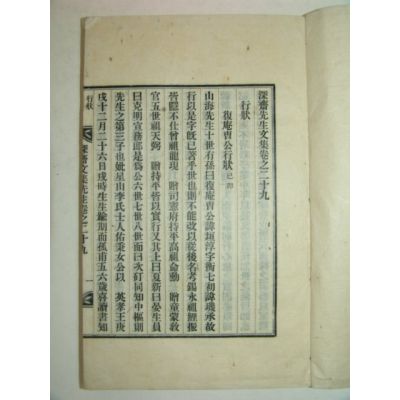 深齋先生文集卷之二十九
行狀
復庵曺公行狀 己卯
山海先生十世有孫曰復庵曺公諱垣淳字衡七初諱璣承故
行以是字旣已著乎世也則不改以從後名考錫永祖鯉振
皆隱不仕曾祖龍現 贈司憲府持平高祖命勳 贈童蒙教
官五世祖天弼 贈持平皆以實行又其上曰夏新曰晏生員
曰克明宣務郎是爲公六世七世八世而曰次矴同知中樞則
先生之第三子也妣星山李氏士人佑秉女公以 英孝王庚
戌十二月二十六日戌時生生踰期而孤甫五六歲喜讀書知
行狀
深齋文集先生卷之二十九
一